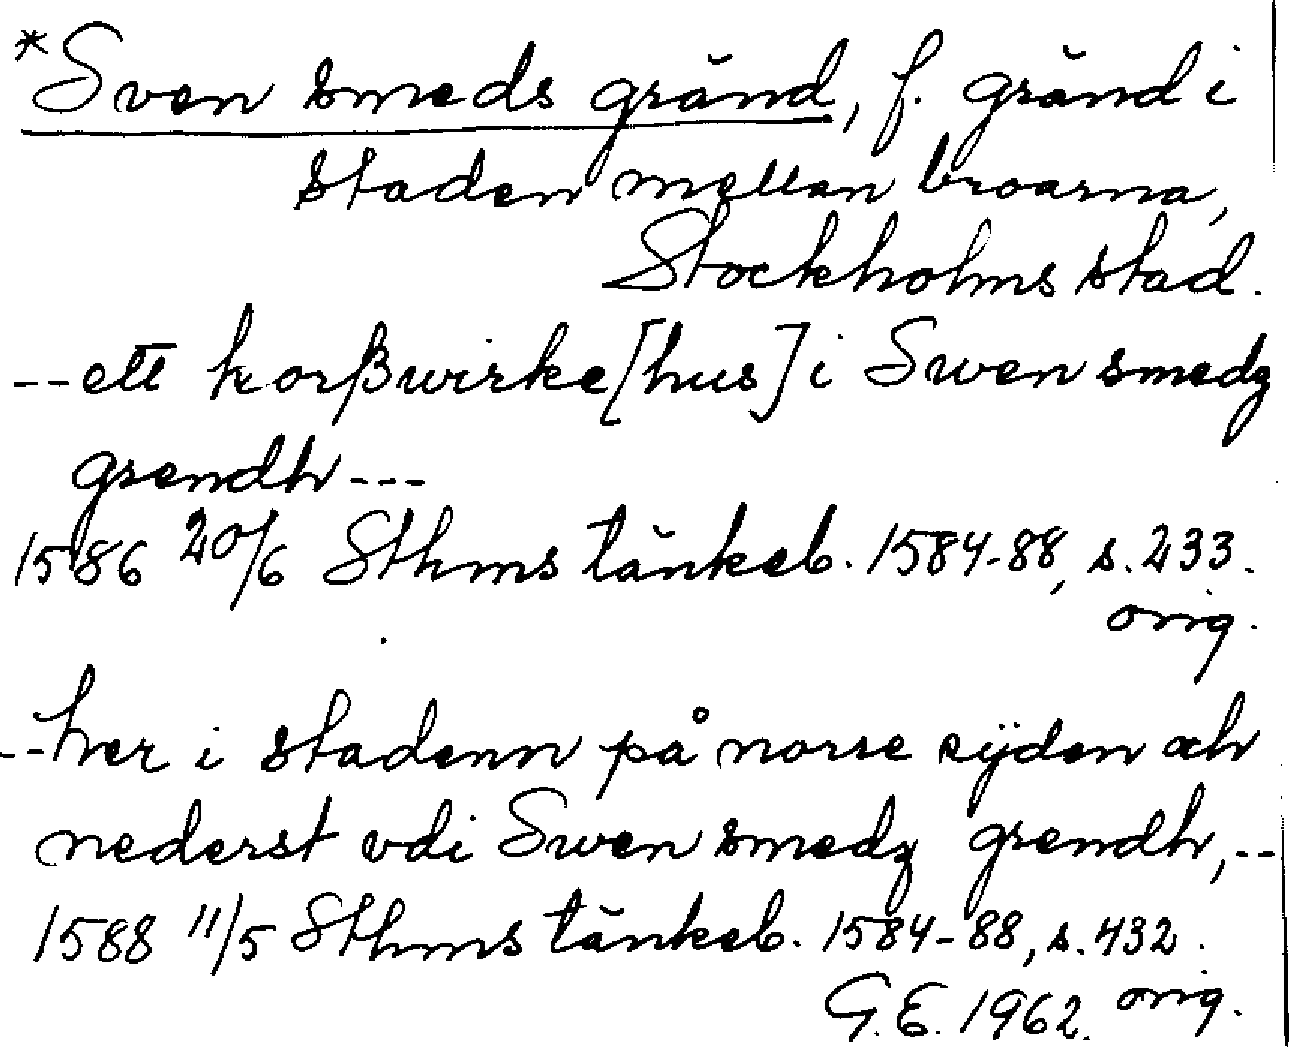 *Sven smeds gränd, f. gränd i
staden mellan broarna,
Stockholms stad.
-- ett korßwirke [hus] i Swen smedz
grendh ---
1586 20/6 Sthms tänkeb. 1584-88, s. 233.
orig.
-- her i stadenn på norre sijden och
nederst vdi Swen smedz grendh, --
1588 11/5 Sthms tänkeb. 1584-88, s. 432.
orig.
G.E. 1962.